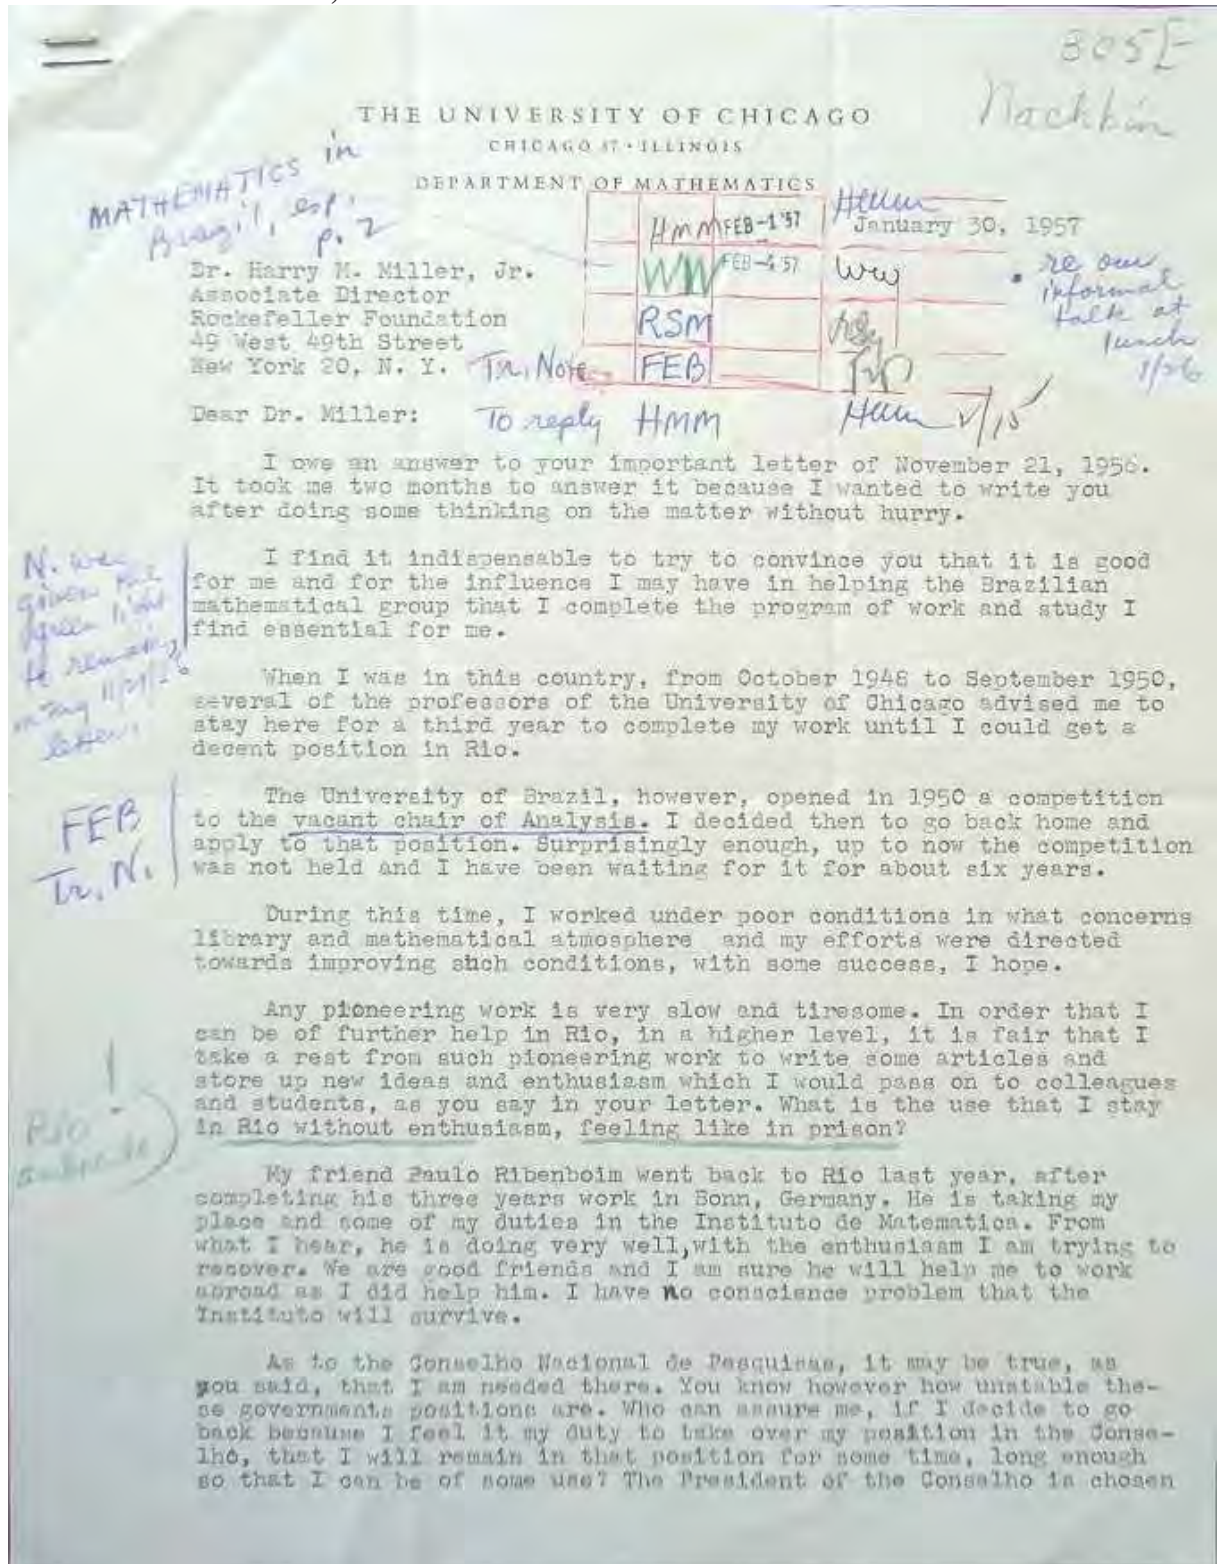 305E
Nachbin
THE UNIVERSITY OF CHICAGO
CHICAGO 37 · ILLINOIS
DEPARTMENT OF MATHEMATICS
MATHEMATICS in
Brazil, esp.
p. 2
HMM FEB-1 '57
January 30, 1957
WW FEB-4 57 WW
RSM
Tr. Note FEB
re our
informal
talk at
lunch
1/26
Dr. Harry M. Miller, Jr.
Associate Director
Rockefeller Foundation
49 West 49th Street
New York 20, N. Y.
Dear Dr. Miller:
To reply HMM HMM 2/15
I owe an answer to your important letter of November 21, 1956.
It took me two months to answer it because I wanted to write you
after doing some thinking on the matter without hurry.
N. was
given the
green light
to remain
in my 11/21/56
letter.
I find it indispensable to try to convince you that it is good
for me and for the influence I may have in helping the Brazilian
mathematical group that I complete the program of work and study I
find essential for me.
When I was in this country, from October 1948 to September 1950,
several of the professors of the University of Chicago advised me to
stay here for a third year to complete my work until I could get a
decent position in Rio.
FEB
Tr. N.
The University of Brazil, however, opened in 1950 a competition
to the vacant chair of Analysis. I decided then to go back home and
apply to that position. Surprisingly enough, up to now the competition
was not held and I have been waiting for it for about six years.
During this time, I worked under poor conditions in what concerns
library and mathematical atmosphere and my efforts were directed
towards improving such conditions, with some success, I hope.
Any pioneering work is very slow and tiresome. In order that I
can be of further help in Rio, in a higher level, it is fair that I
take a rest from such pioneering work to write some articles and
store up new ideas and enthusiasm which I would pass on to colleagues
and students, as you say in your letter. What is the use that I stay
in Rio without enthusiasm, feeling like in prison?
!
Rio
My friend Paulo Ribenboim went back to Rio last year, after
completing his three years work in Bonn, Germany. He is taking my
place and some of my duties in the Instituto de Matematica. From
what I hear, he is doing very well, with the enthusiasm I am trying to
recover. We are good friends and I am sure he will help me to work
abroad as I did help him. I have no conscience problem that the
Instituto will survive.
As to the Conselho Nacional de Pesquisas, it may be true, as
you said, that I am needed there. You know however how unstable the-
se governments positions are. Who can assure me, if I decide to go
back because I feel it my duty to take over my position in the Conse-
lho, that I will remain in that position for some time, long enough
so that I can be of some use? The President of the Conselho is chosen